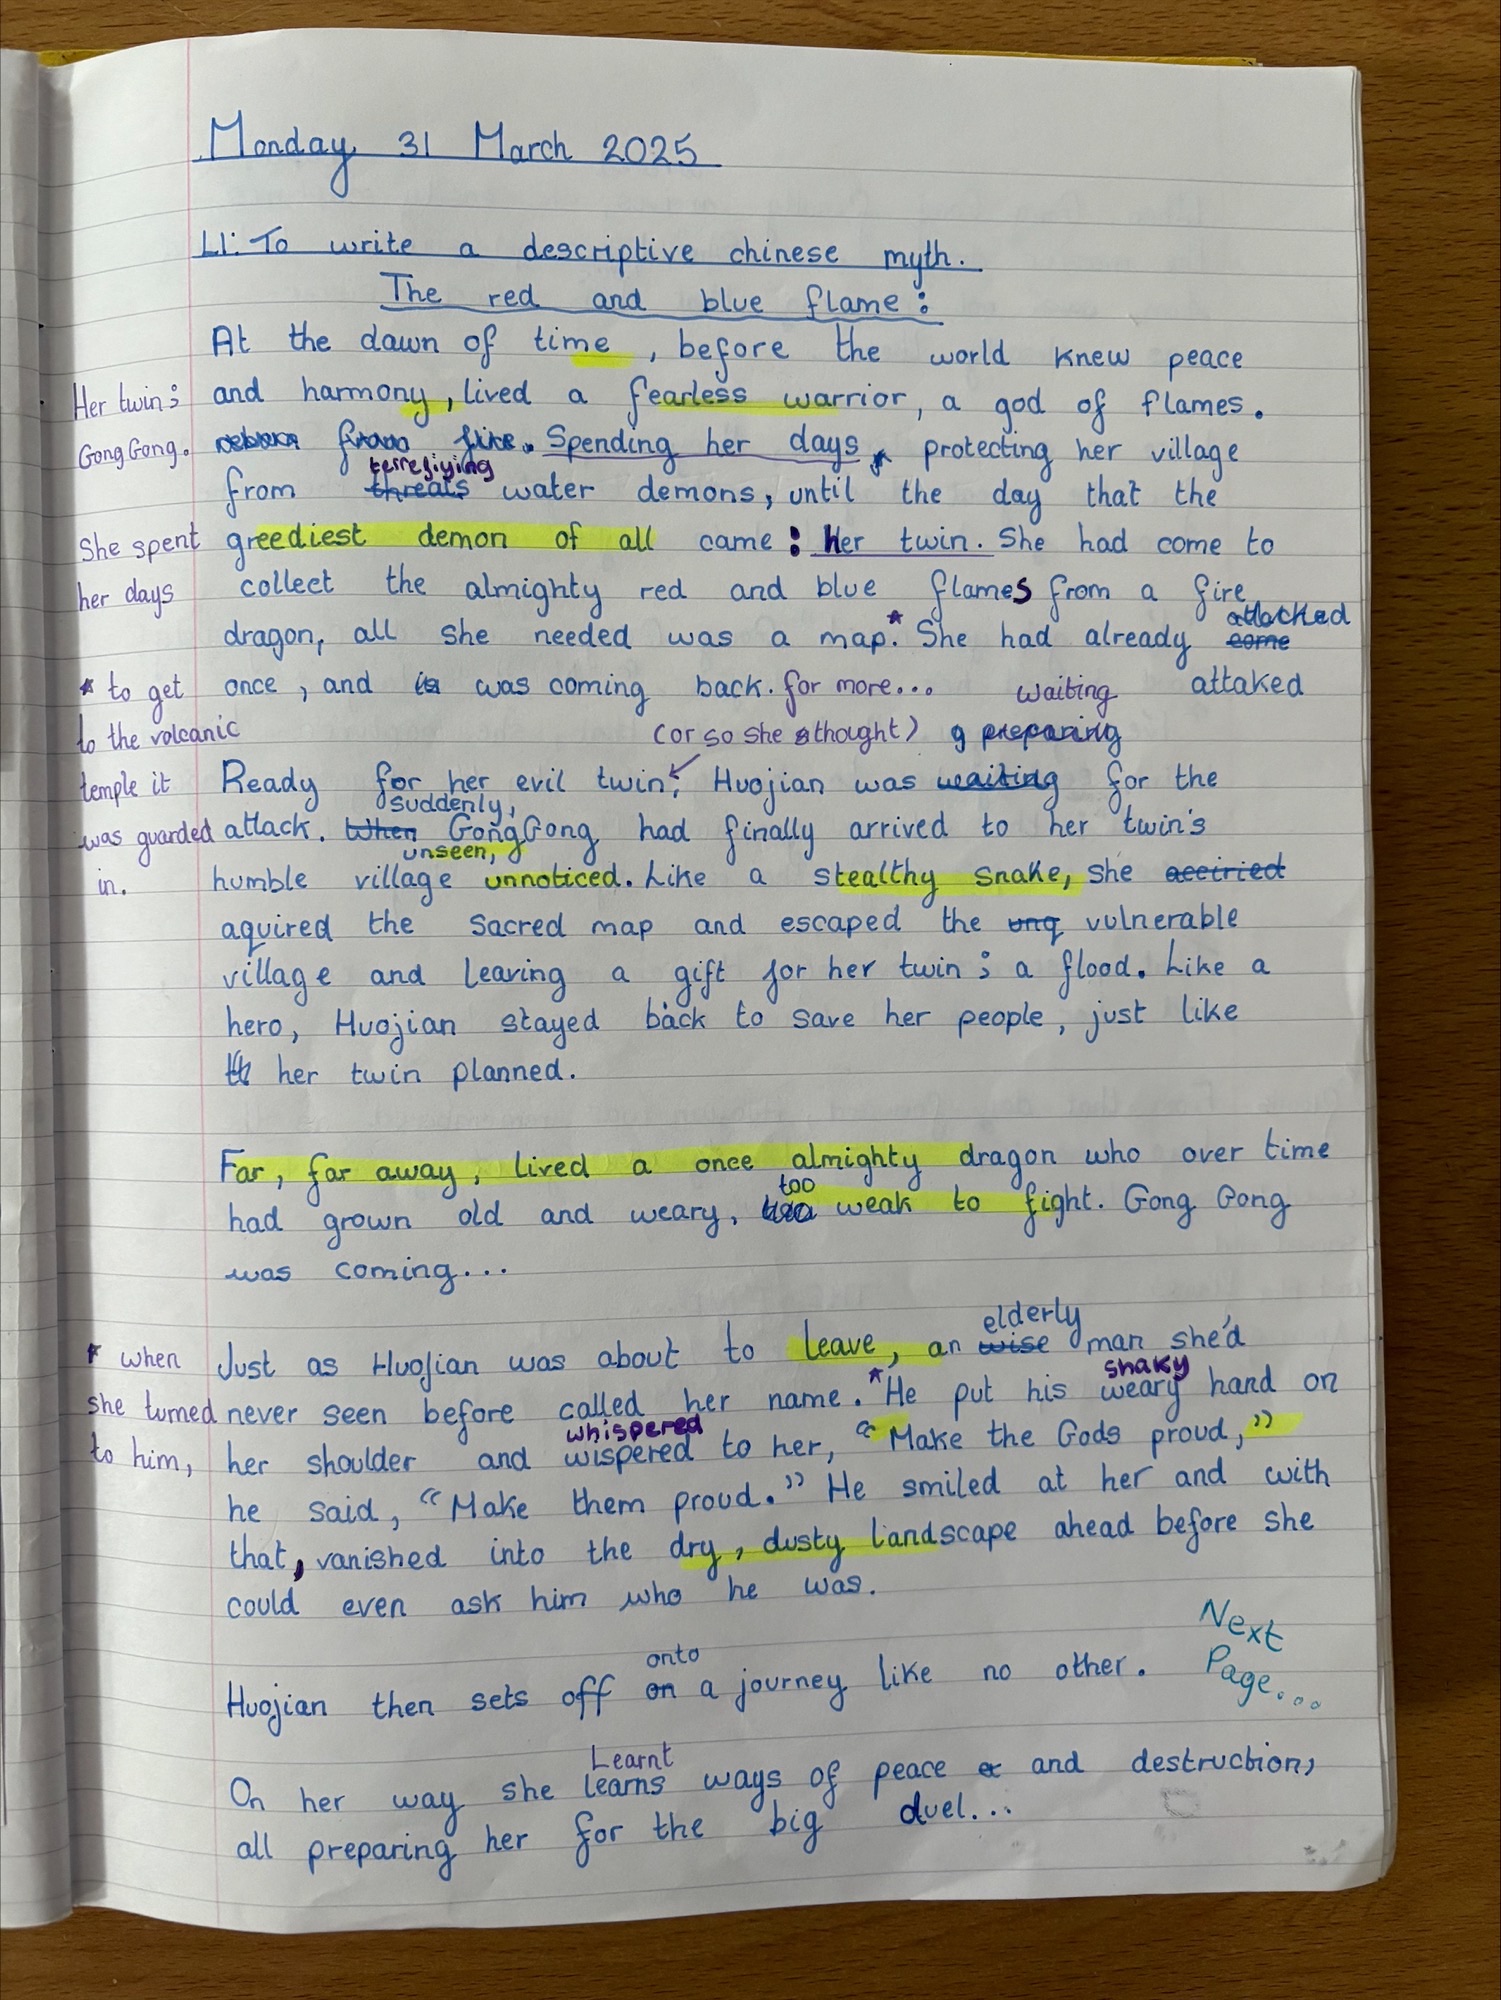 Monday 31 March 2025
LI: To write a descriptive chinese myth.
The red and blue flame:
At the dawn of time, before the world knew peace
Her twin;
and harmony, lived a fearless warrior, a god of flames.
Gong Gong.
from fire. Spending her days, protecting her village
terrefiying
from threats water demons, until the day that the
She spent
greediest demon of all came: Her twin. She had come to
her days
collect the almighty red and blue flames from a fire
attacked
dragon, all she needed was a map.* She had already come
* to get
once, and is was coming back. for more... waiting attaked
to the volcanic
(or so she thought) preparing
temple it
Ready for her evil twin; Huojian was waiting for the
suddenly,
was guarded
attack. When GongGong had finally arrived to her twin's
unseen,
in.
humble village unnoticed. Like a stealthy snake, she acciried
aquired the sacred map and escaped the unq vulnerable
village and leaving a gift for her twin; a flood. Like a
hero, Huojian stayed back to save her people, just like
th her twin planned.
Far, far away, lived a once almighty dragon who over time
too
had grown old and weary, weak to fight. Gong Gong
was coming...
elderly
* when
Just as Huojian was about to leave, an wise man she'd
shaky
she turned
never seen before called her name.* He put his weary hand on
whispered
to him,
her shoulder and wispered to her, "Make the Gods proud,"
he said, "Make them proud." He smiled at her and with
that, vanished into the dry, dusty landscape ahead before she
could even ask him who he was.
Next
onto
Page...
Huojian then sets off on a journey like no other.
Learnt
On her way she learns ways of peace and destruction,
all preparing her for the big duel...